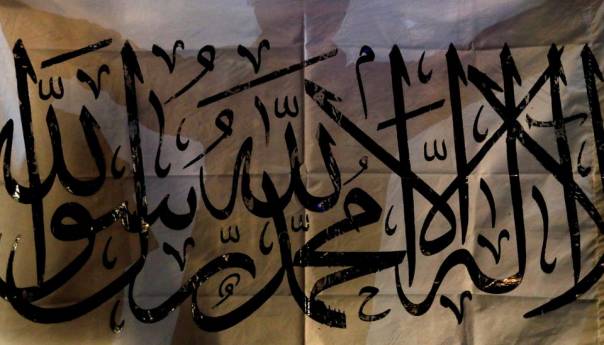 لَا إِلٰهَ إِلَّا اللّٰه مُحَمَّدٌ رَّسُولُ اللّٰه